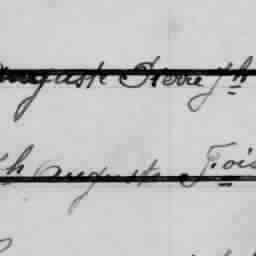 Auguste Pierre Jh
Jh Auguste F.ois